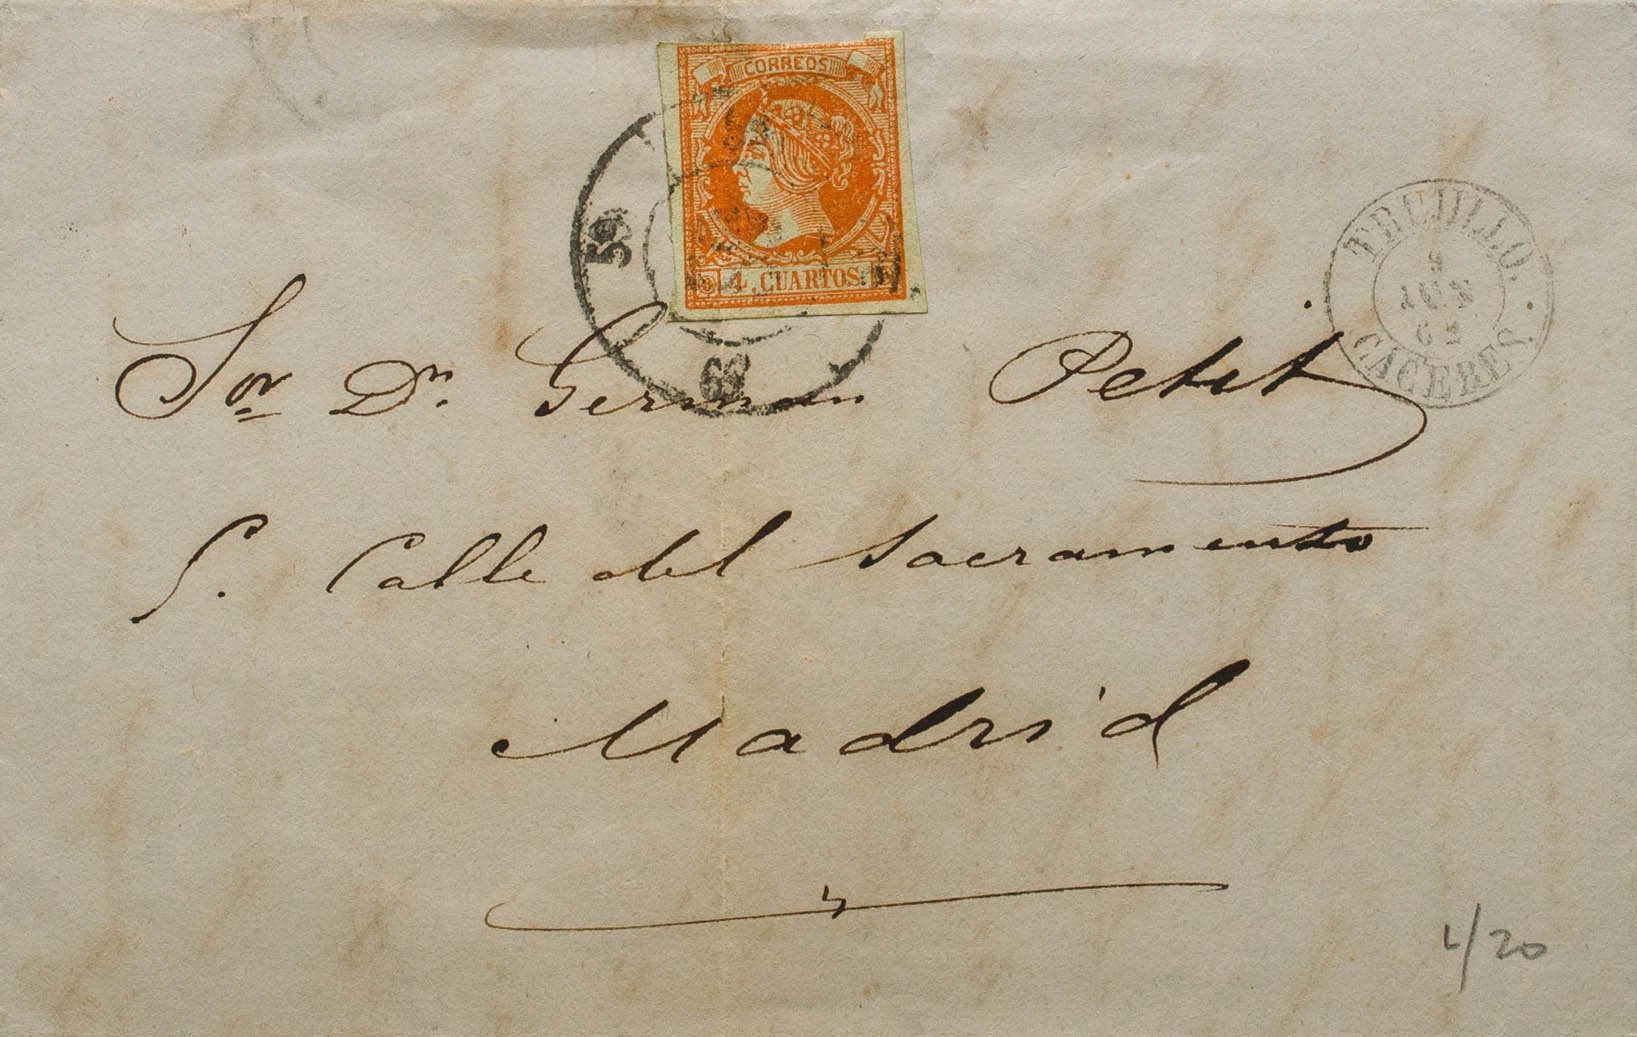 CORREOS
4 CUARTOS
59
TRUJILLO.
9
JUN
62
CACERES
Sor Dn. German Petit
S. Calle del Sacramento
Madrid